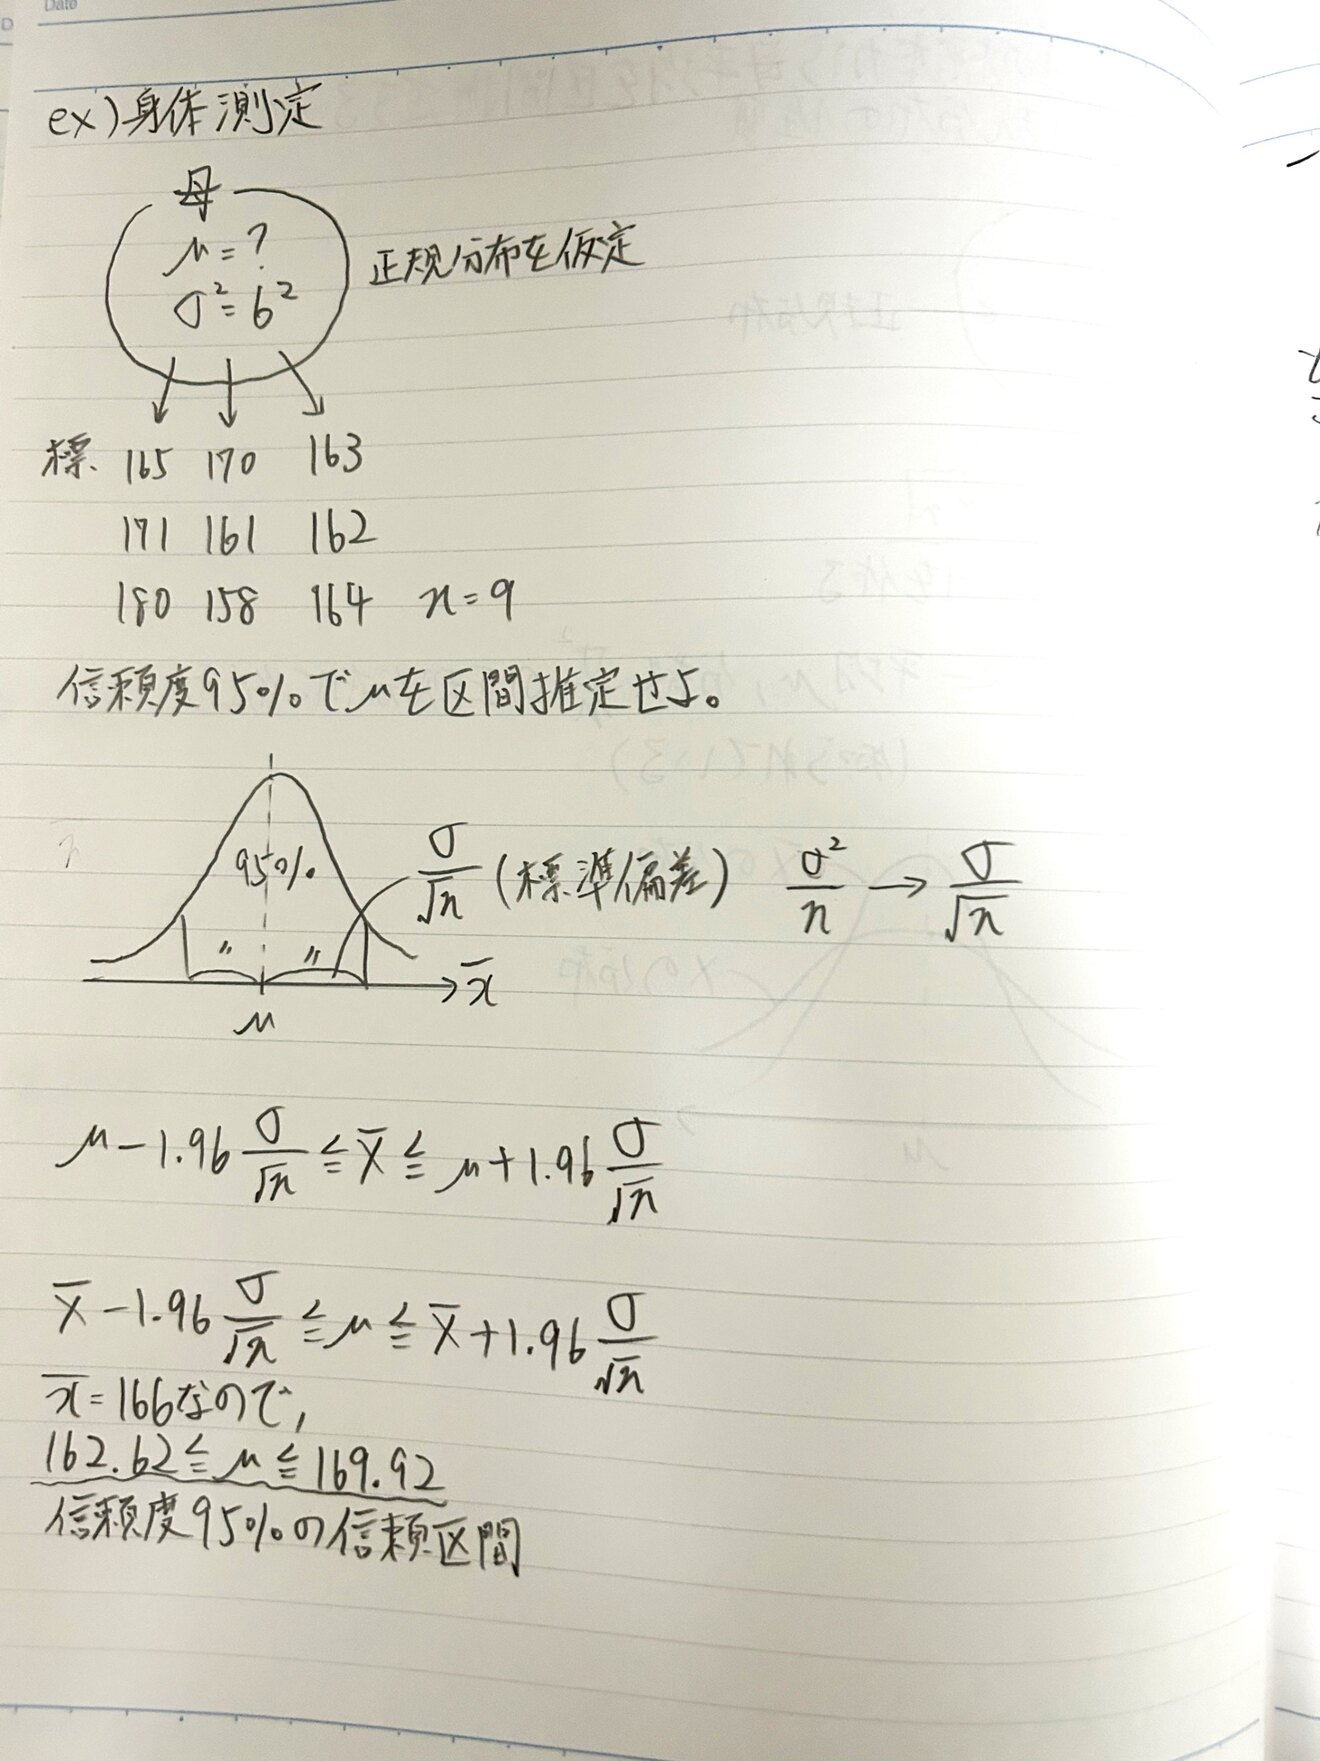 Date
ex)身体測定
母
μ=?
σ²=6²
正規分布を仮定
標. 165 170 163
171 161 162
180 158 164 n=9
信頼度95%でμを区間推定せよ。
95%
σ/√n (標準偏差) σ²/n → σ/√n
〃 〃
x̄
μ
μ-1.96 σ/√n ≦ x̄ ≦ μ+1.96 σ/√n
x̄-1.96 σ/√n ≦ μ ≦ x̄+1.96 σ/√n
x̄=166なので,
162.62≦μ≦169.92
信頼度95%の信頼区間